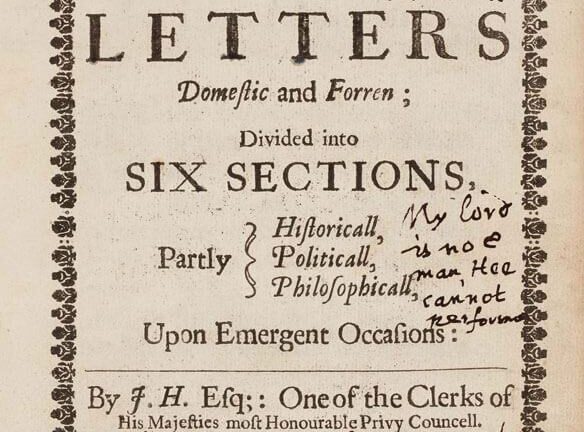 LETTERS
Domeſtic and Forren ;
Divided into
SIX SECTIONS,
Partly { Hiſtoricall,
Politicall,
Philoſophicall,
My lord
is no e
man, Hee
cannot
performe
Upon Emergent Occaſions :
By J. H. Eſq; : One of the Clerks of
His Majeſties moſt Honourable Privy Councell.